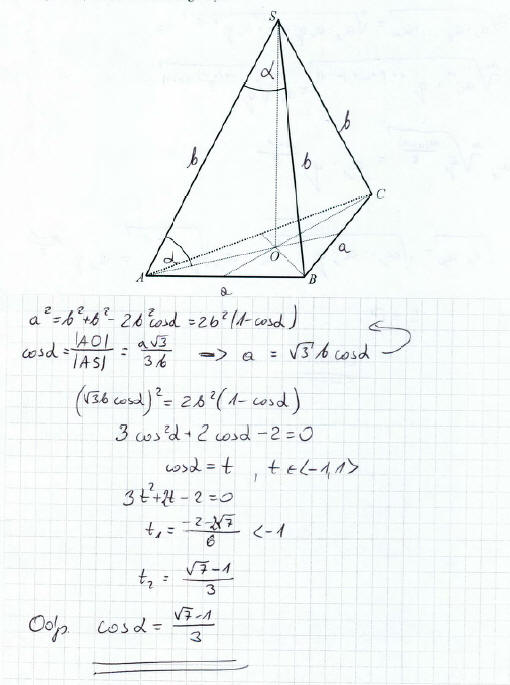 S
α
b
b
b
C
α
a
O
A
B
a
a² = b² + b² - 2b² cosα = 2b² (1 - cosα)
cosα = |AO| / |AS| = a√3 / 3b → a = √3 b cosα
(√3 b cosα)² = 2b² (1 - cosα)
3 cos²α + 2 cosα - 2 = 0
cosα = t , t ∈ <-1, 1>
3t² + 2t - 2 = 0
t₁ = (-2 - 2√7) / 6 < -1
t₂ = (√7 - 1) / 3
Odp. cosα = (√7 - 1) / 3